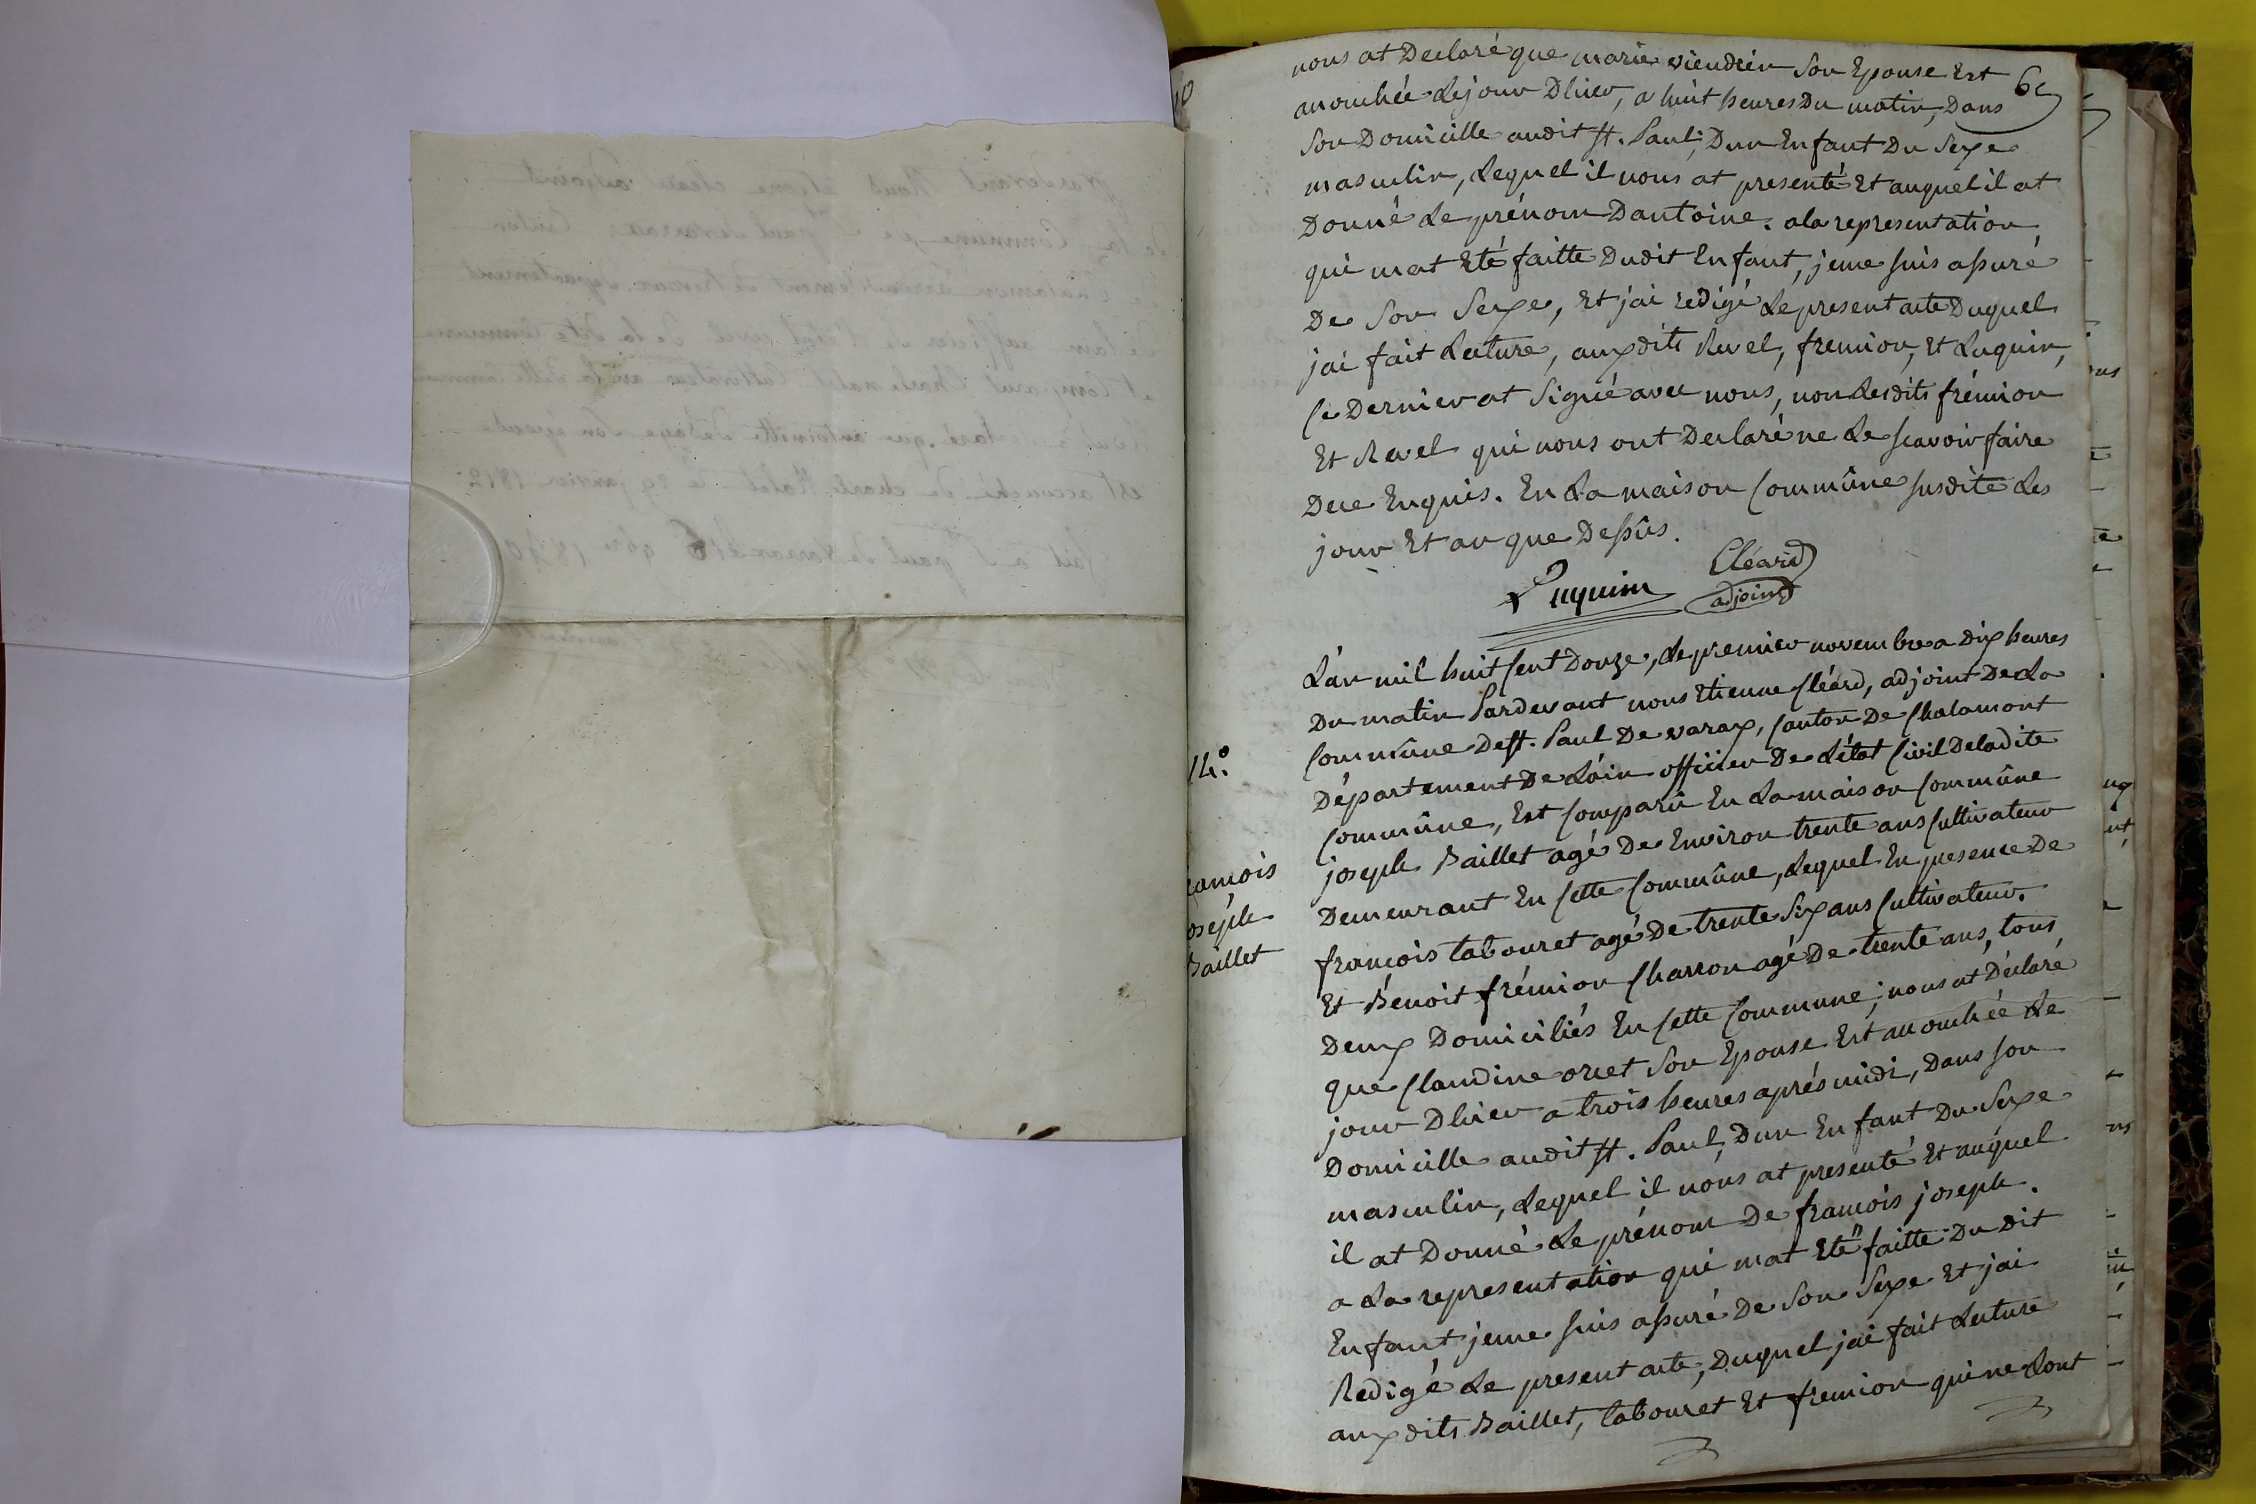 nous at Declaré que marie viendrin Son Epouse Est
65
accouchée Le jour Dhier, a huit heures Du matin, Dans
Son Domicille audit St. Paul, Dun Enfant Du Sexe
masculin, Lequel il nous at presenté Et auquel il at
Donné Le prénom Dantoine. a la representation
qui mat Eté faitte Dudit Enfant, jeme suis assuré
De Son Sexe, Et jai redigé Le present acte Duquel
jai fait Lecture, auxdits Revel, fremion, Et Luquin,
Ce Dernier at Signé avec nous, non Lesdits frémion
Et Revel qui nous ont Declaré ne Le scavoir faire
Dece Enquis. En La maison Commûne susdite Les
jour Et an que Dessûs.
Luquin Cléard
adjoint
L'an mil huit Cent Douze, Le premier novembre a dix heures
Du matin Pardevant nous Etienne Cléard, adjoint De La
Commûne De St. Paul De varax, Canton De Chalamont
14.°
Département De L'ain officier De L'état Civil De ladite
Commûne, Est Comparû En La maison Commûne
joseph Baillet agé De Environ trente ans Cultivateur
Demeurant En Cette Commûne, Lequel En presence De
françois tabouret agé De trente Six ans Cultivateur.
Et Benoit frémion Charron agé De trente ans, tous
Deux Domiciliés En Cette Commune; nous at Déclaré
ancois
oseph
Baillet
que Claudine orcet Son Epouse Est accouchée Le
jour Dhier a trois heures aprés midi, Dans Son
Domicille audit St. Paul, Dun Enfant Du Sexe
masculin, Lequel il nous at presenté Et auquel
il at Donné Le prénom De francois joseph.
a La representation qui mat Eté faitte Du dit
Enfant jeme suis assuré De Son Sexe Et jai
Redigé Le present acte, Duquel jai fait Lecture
auxdits Baillet, tabouret Et fremion qui ne Lont